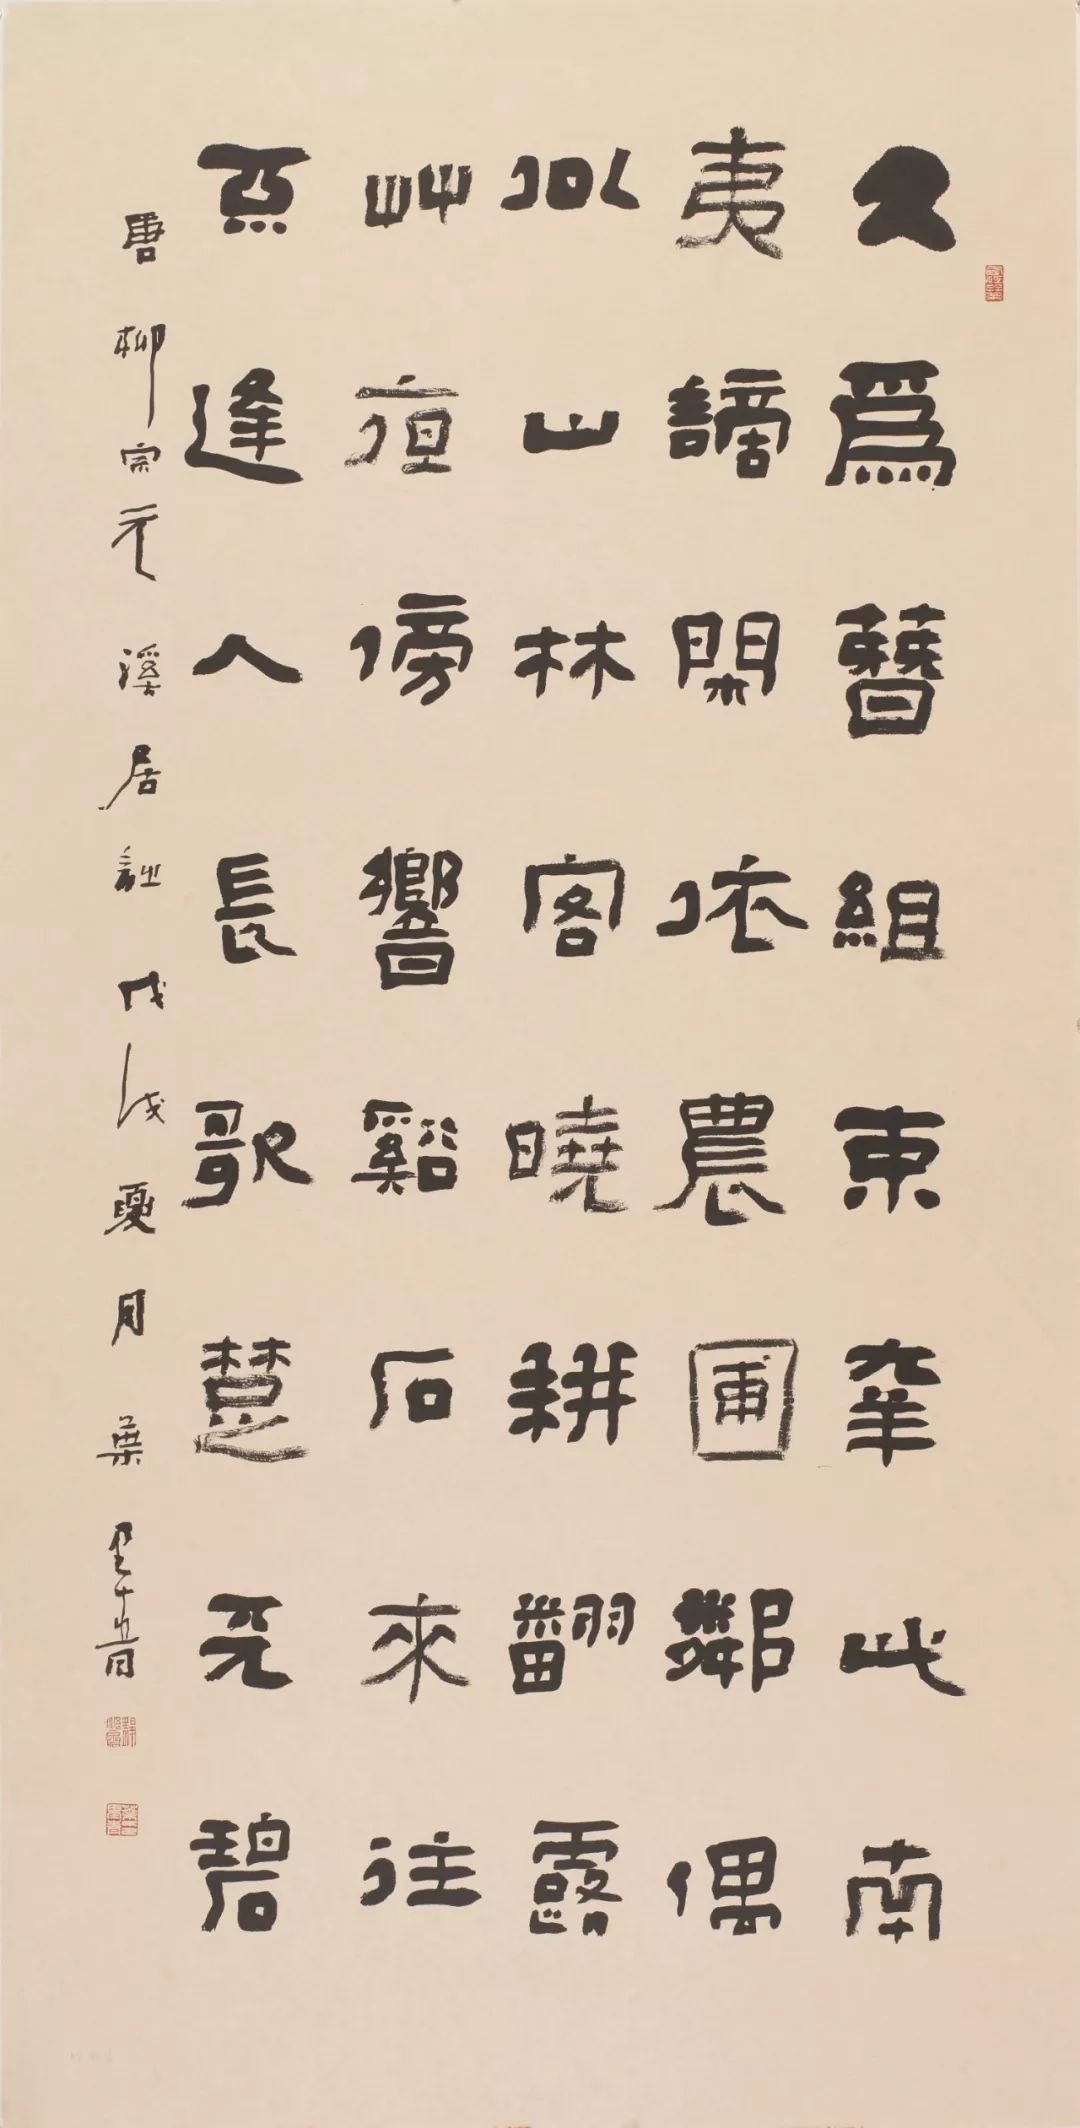 久爲簪組束幸此南
夷謫閑依農圃鄰偶
似山林客曉耕翻露
艸夜傍響谿石來往
不逢人長歌楚天碧
唐柳宗元溪居詩戊戌夏月葉